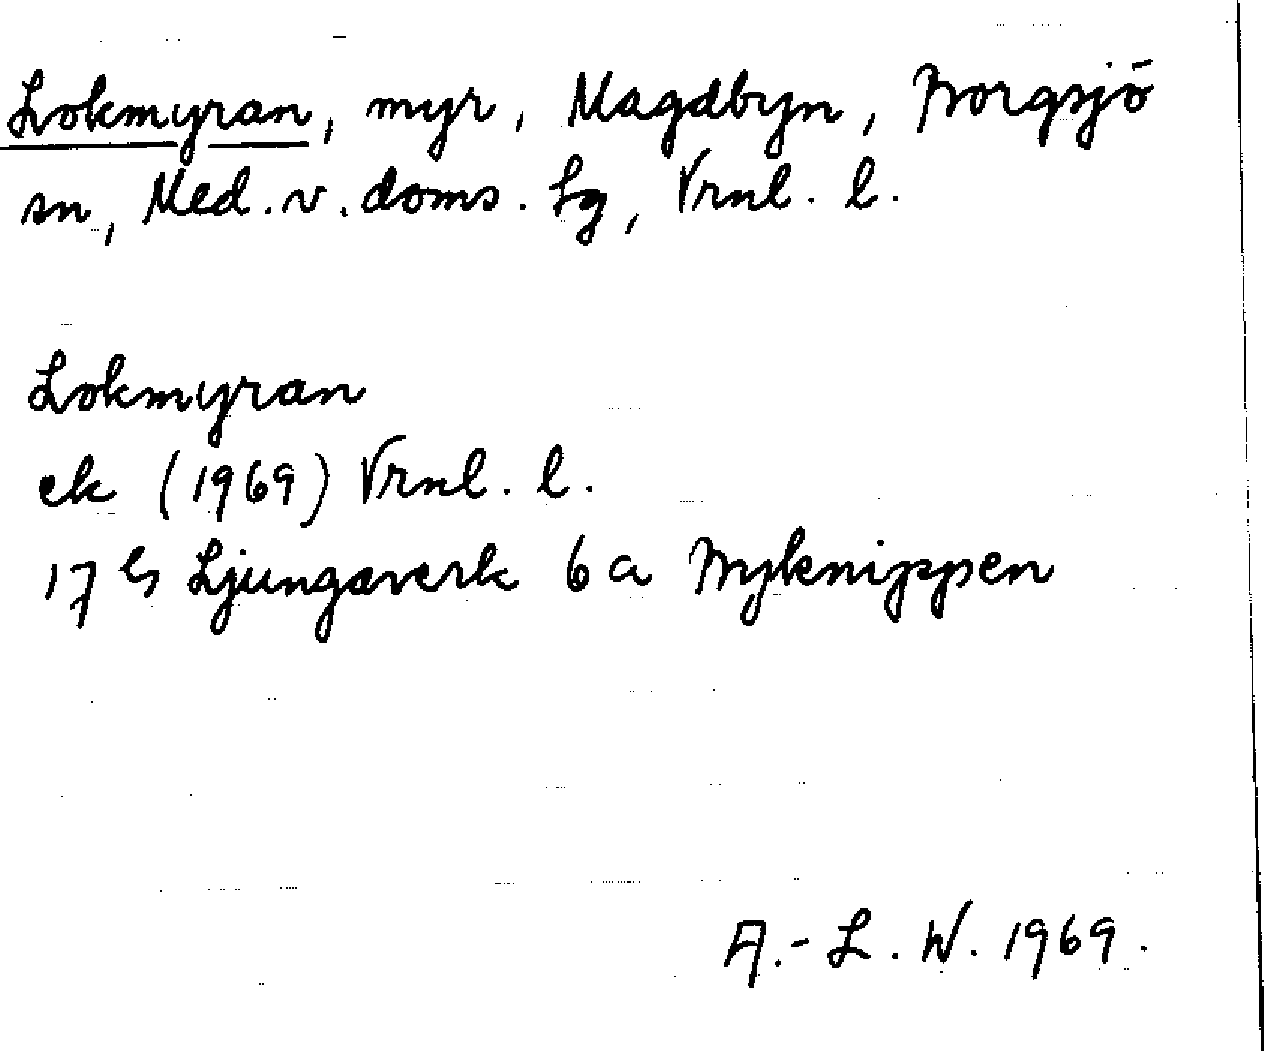 Lokmyran, myr, Magdbyn, Borgsjö
sn, Med. v. doms. Lg, Vrnl. l.
Lokmyran
ek (1969) Vrnl. l.
17 Ljungaverk 6 a Byknippen
A.-L. W. 1969.